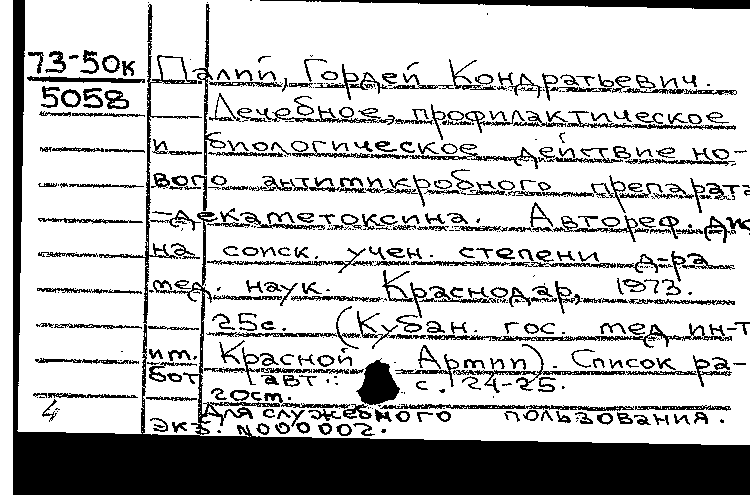 73-50к Палий, Гордей Кондратьевич.
5058 Лечебное, профилактическое
и биологическое действие но-
вого антимикробного препарата
=декаметоксина. Автореф. дис
на соиск. учен. степени д-ра
мед. наук. Краснодар, 1973.
25с. (Кубан. гос. мед ин-т
им. Красной Армии). Список ра-
бот авт.: с. 24-25.
20ст.
Для служебного пользования.
4 экз. N000002.